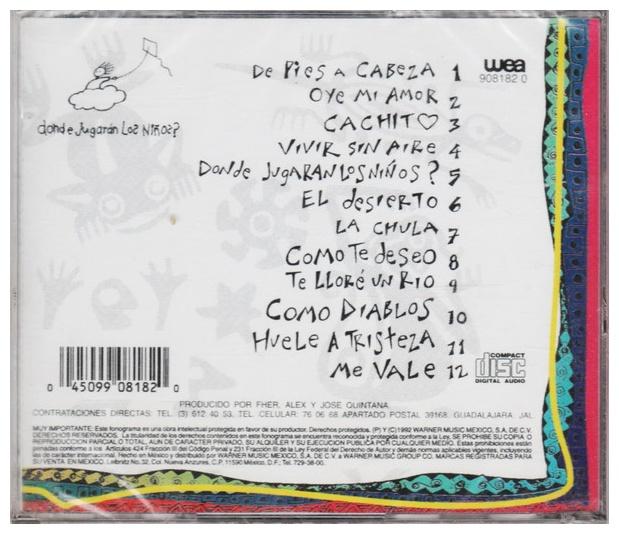 De Pies A CABEZA 1
OYE MI AMOR 2
CACHITO 3
VIVIR SIN AIRE 4
DONDE JUGARAN LOS NIÑOS? 5
EL desierto 6
LA CHULA 7
COMO Te deseo 8
Te LLORÉ UN RIO 9
COMO DIABLOS 10
HUELE A TRISTEZA 11
Me VALE 12
wea
908182 0
donde Jugarán Los NIÑOS?
COMPACT
disc
DIGITAL AUDIO
0 45099 08182 0
PRODUCIDO POR FHER, ALEX Y JOSE QUINTANA.
CONTRATACIONES DIRECTAS: TEL. (3) 612 40 53, TEL. CELULAR: 76 06 68 APARTADO POSTAL 39168, GUADALAJARA, JAL.
MUY IMPORTANTE: Este fonograma es una obra intelectual protegida en favor de su productor. Derechos protegidos. (P) Y (C) 1992 WARNER MUSIC MEXICO, S.A. DE C.V.
DERECHOS RESERVADOS. La titularidad de los derechos contenidos en este fonograma se encuentra reconocida y protegida conforme a la Ley, SE PROHIBE SU COPIA O
REPRODUCCION PARCIAL O TOTAL, AUN DE CARACTER PRIVADO, SU ALQUILER Y SU EJECUCION PUBLICA POR CUALQUIER MEDIO. Estas prohibiciones están
penadas conforme a los Artículos 424 Fracción III del Código Penal y 231 Fracción III de la Ley Federal del Derecho de Autor y demás normas aplicables vigentes, incluyendo
las de carácter internacional. Hecho en México y distribuido por WARNER MUSIC MEXICO, S.A. DE C.V. a WARNER MUSIC GROUP CO. MARCAS REGISTRADAS PARA
SU VENTA EN MEXICO. Leibnitz No. 32, Col. Nueva Anzures, C.P. 11590 México, D.F.; Tel. 729-38-00.